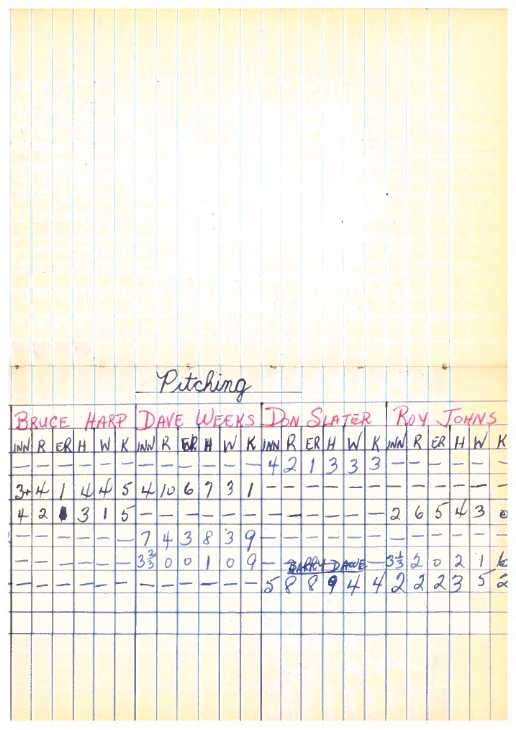 Pitching
BRUCE HARP DAVE WEEKS DON SLATER ROY JOHNS
INN R ER H W K INN R ER H W K INN R ER H W K INN R ER H W K
– – – – – – – – – – – – 4 2 1 3 3 3 – – – – – –
3+ 4 1 4 4 5 4 10 6 7 3 1 – – – – – – – – – – – –
4 2 3 1 5 – – – – – – – – – – – – 2 6 5 4 3
– – – – – – 7 4 3 8 3 9 – – – – – – – – – – – –
– – – – – – 3⅔ 0 0 1 0 9 – BARRY DAWE – 3⅓ 2 0 2 1
– – – – – – – – – – – – 5 8 8 9 4 4 2 2 2 3 5 2